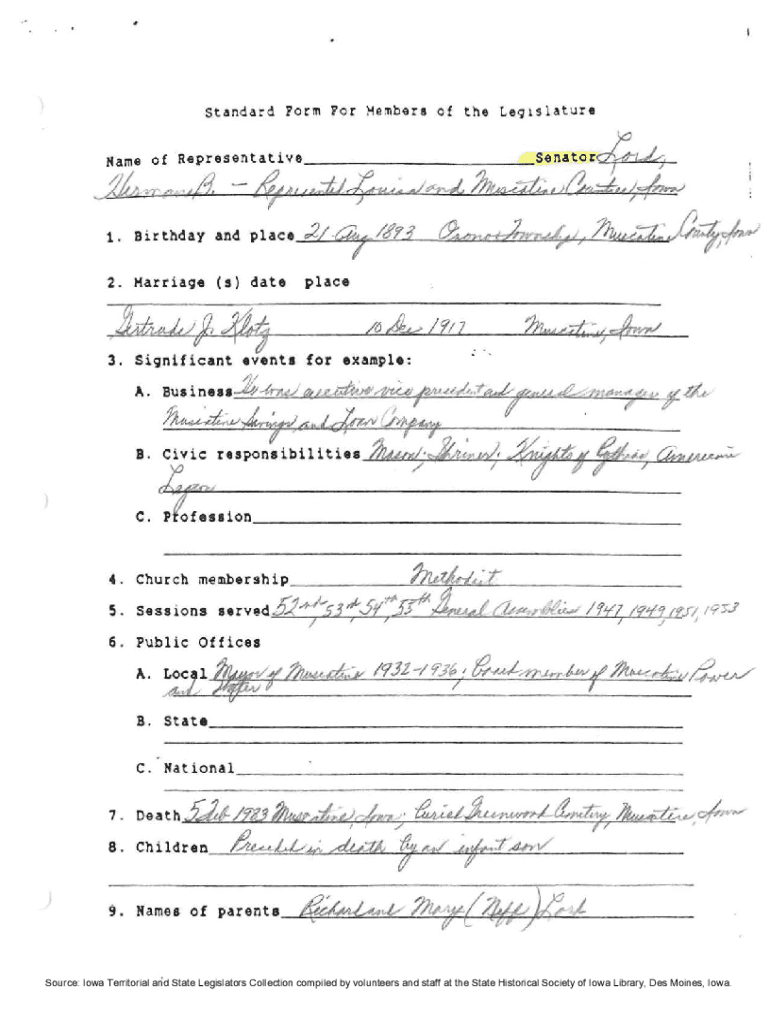 1
Standard Form For Members of the Legislature
Name of Representative Senator Lord,
Herman B. - Represented Louisa and Muscatine Counties, Iowa
1. Birthday and place 21 Aug 1893 Orono Township, Muscatine County, Iowa
2. Marriage (s) date place
Gertrude J. Klotz 10 Dec 1917 Muscatine, Iowa
3. Significant events for example:
A. Business He was executive vice president and general manager of the
Muscatine Savings and Loan Company
B. Civic responsibilities Mason; Shriner; Knights of Pythias, American
Legion
C. Profession
4. Church membership Methodist
5. Sessions served 52nd, 53rd, 54th, 55th General Assemblies 1947, 1949, 1951, 1953
6. Public Offices
A. Local Mayor of Muscatine 1932-1936; Board member of Muscatine Power
and Water
B. State
C. National
7. Death 5 Feb 1983 Muscatine, Iowa; buried Greenwood Cemetery, Muscatine, Iowa
8. Children Preceded in death by an infant son
9. Names of parents Richard and Mary (Neff) Lord
Source: Iowa Territorial and State Legislators Collection compiled by volunteers and staff at the State Historical Society of Iowa Library, Des Moines, Iowa.